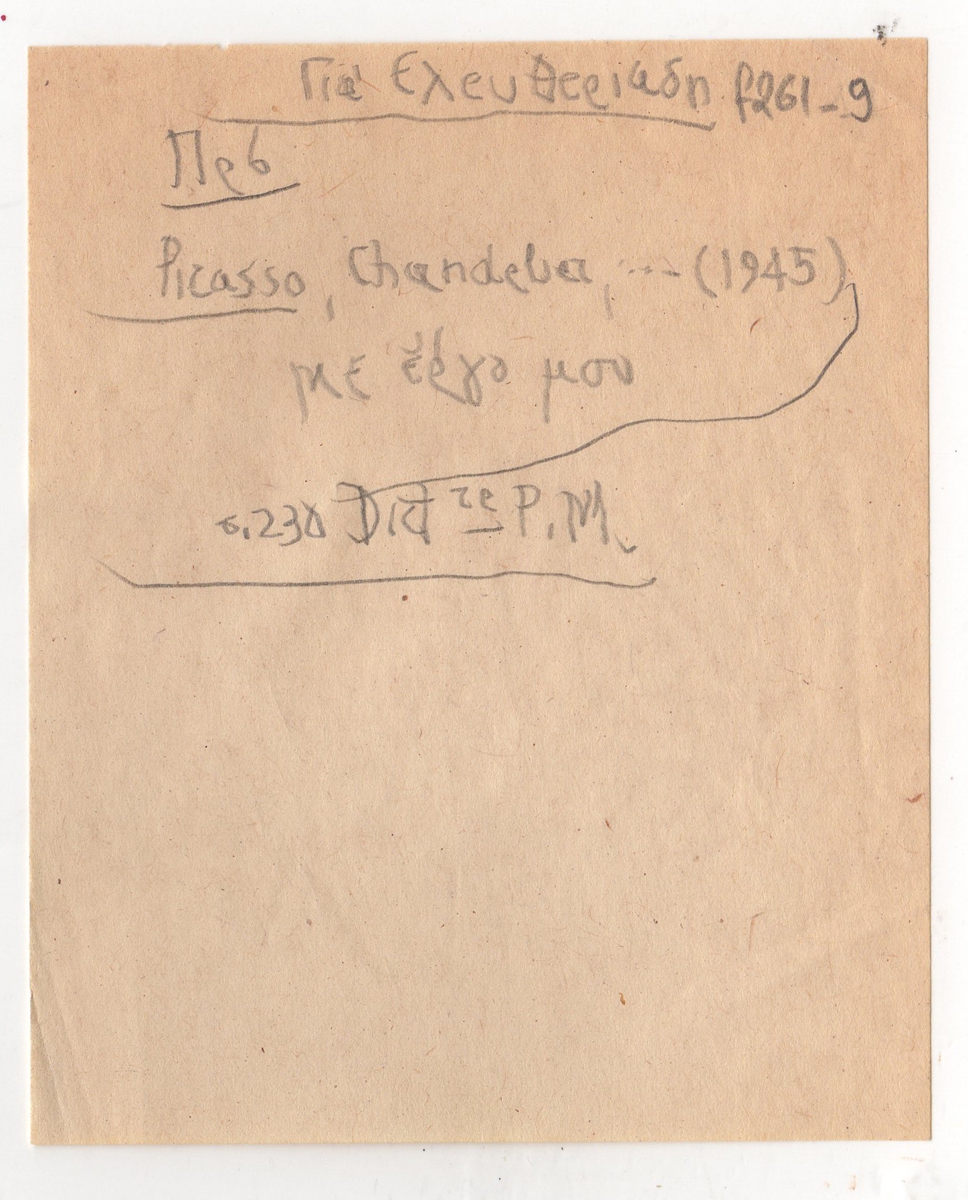 Για Ελευθεριαδη f261-9
Πρβ
Picasso, Chandelier, ... (1945)
με έργο μου
σ. 230 Dict P. M.